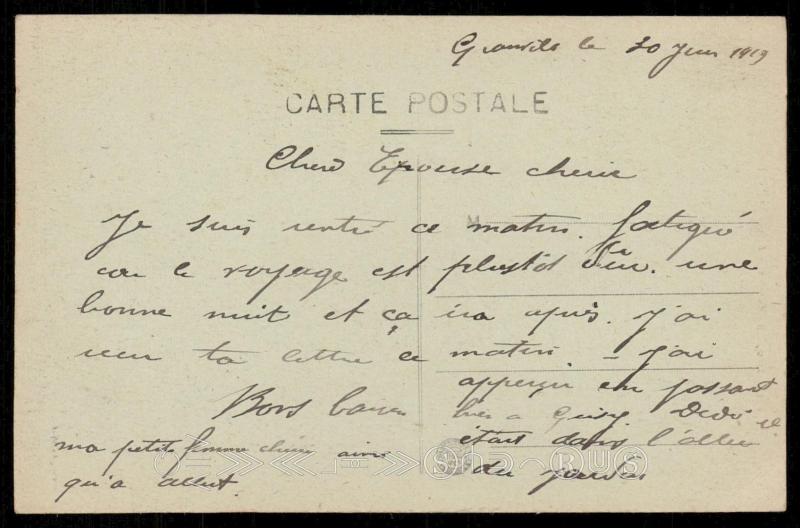 Granville le 30 Juin 1919
CARTE POSTALE
Chere Epouse cherie
M
Je suis rentré ce matin. fatigué
car le voyage est plustôt dur. une
bonne nuit et ça ira après. J'ai
ta lettre ce matin – J'ai
apperçu en passant
hier a Dédé il
etait dans l'allée
du jardin
Bons baisers
ma petite femme cherie ainsi
qu'a